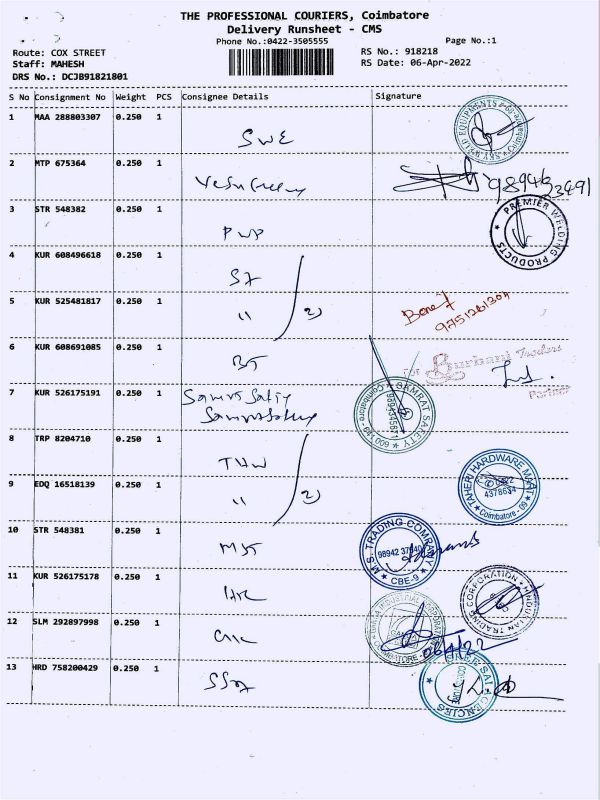 THE PROFESSIONAL COURIERS, Coimbatore
Delivery Runsheet - CMS
Phone No.:0422-3505555 Page No.:1
Route: COX STREET RS No.: 918218
Staff: MAHESH RS Date: 06-Apr-2022
DRS No.: DCJB91821801
S No Consignment No Weight PCS Consignee Details Signature
1 MAA 288803307 0.250 1
SWE
SKY WELD EQUIPMENTS
2 MTP 675364 0.250 1
3 STR 548382 0.250 1
PWP
PREMIER WELDING PRODUCTS
4 KUR 608496618 0.250 1
ST
5 KUR 525481817 0.250 1
" 2)
9751261304
6 KUR 608691085 0.250 1
BT
For Burhani Traders
Partner
7 KUR 526175191 0.250 1
Samrat Safety
Samrat Safety
SAMRAT SAFETY Coimbatore
8 TRP 8204710 0.250 1
THW
9 EDQ 16518139 0.250 1
" 2)
TAHERI HARDWARE MART
0422
4378634
Coimbatore - 09
10 STR 548381 0.250 1
M.S. TRADING COMPANY
CBE-9
11 KUR 526175178 0.250 1
HINDUSTAN TRADING CORPORATION
12 SLM 292897998 0.250 1
INDUSTRIAL CORPORATION
COIMBATORE
06/4/22
13 HRD 758200429 0.250 1
SREE SAI AGENCIES